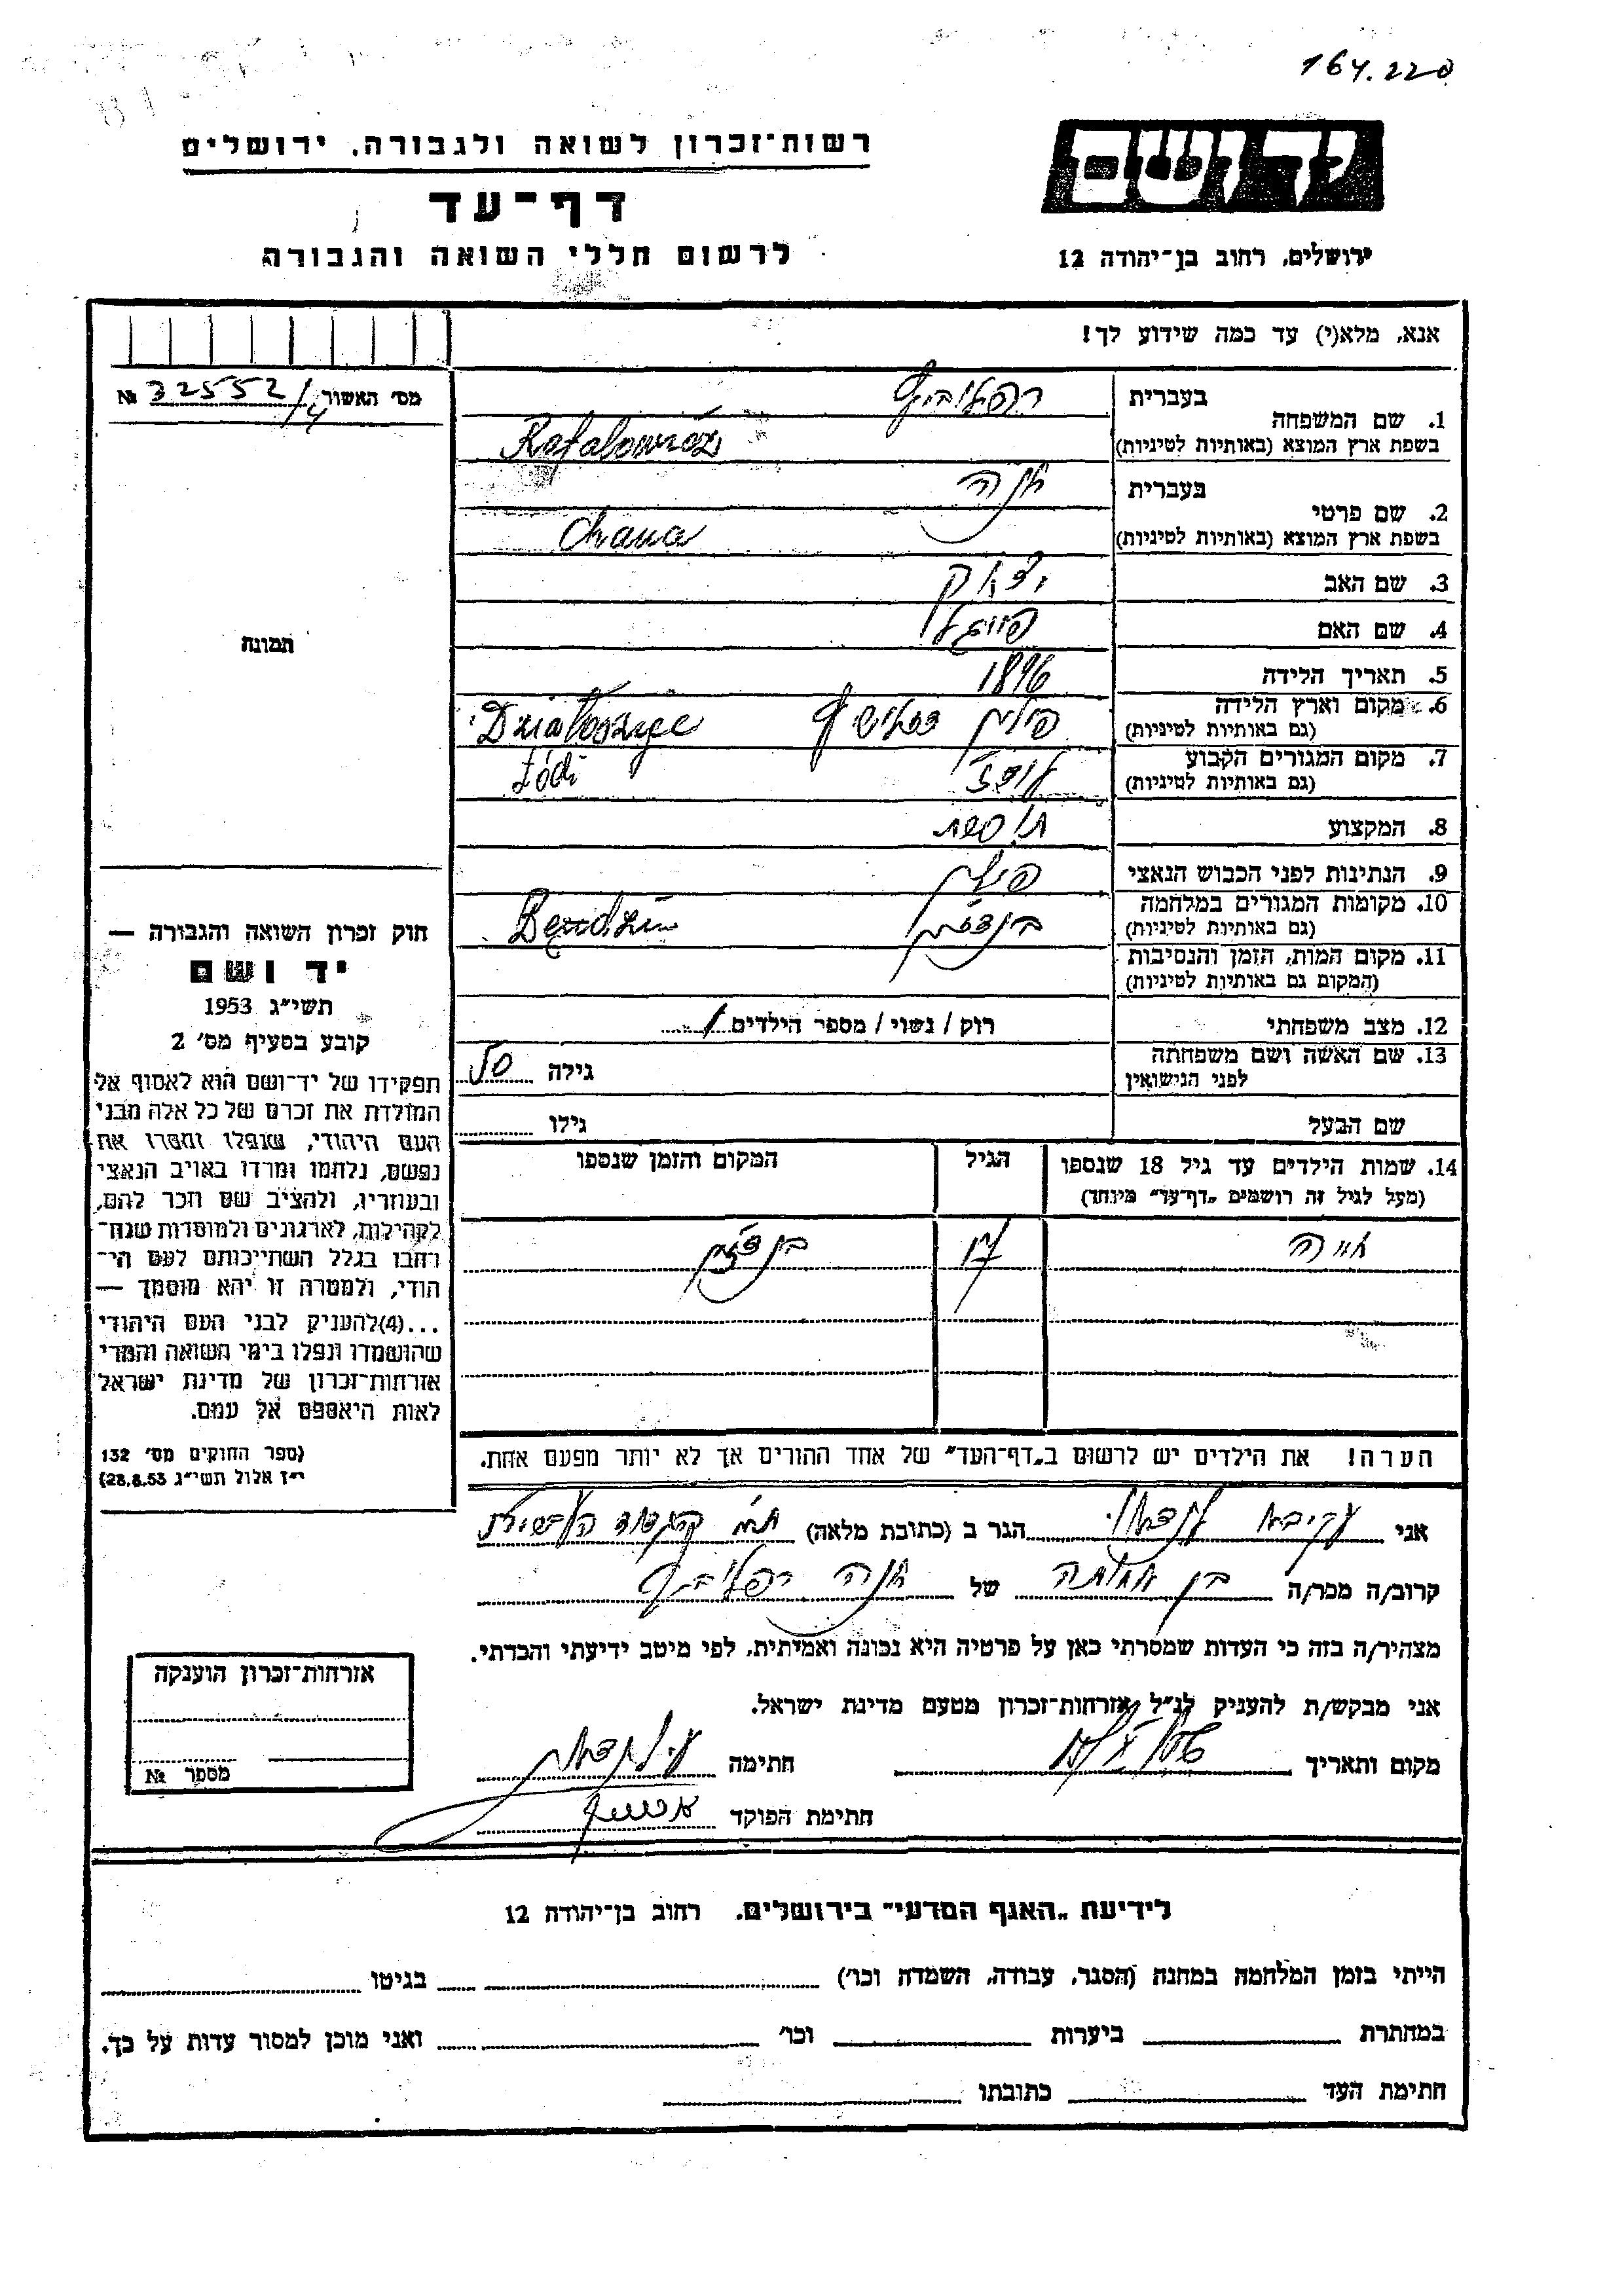 164.220
יד ושם
רשות־זכרון לשואה ולגבורה, ירושלים
דף־עד
לרשום חללי השואה והגבורה
ירושלים, רחוב בן־יהודה 12
אנא, מלא(י) עד כמה שידוע לך!
מס' האשור 32552/4 №
תמונה
חוק זכרון השואה והגבורה —
יד ושם
תשי"ג 1953
קובע בסעיף מס' 2
תפקידו של יד־ושם הוא לאסוף אל
המולדת את זכרם של כל אלה מבני
העם היהודי, שנפלו ומסרו את
נפשם, נלחמו ומרדו באויב הנאצי
ובעוזריו, ולהציב שם וזכר להם,
לקהילות, לארגונים ולמוסדות שנח־
רבו בגלל השתייכותם לעם הי־
הודי, ולמטרה זו יהא מוסמך —
...(4)להעניק לבני העם היהודי
שהושמדו ונפלו בימי השואה והמרי
אזרחות־זכרון של מדינת ישראל
לאות היאספם אל עמם.
(ספר החוקים מס' 132
י"ז אלול תשי"ג 28.8.53)
בעברית רפאלוביץ
1. שם המשפחה
בשפת ארץ המוצא (באותיות לטיניות) Rafalowicz
בעברית חנה
2. שם פרטי
בשפת ארץ המוצא (באותיות לטיניות) Chana
3. שם האב יצחק
4. שם האם פייגלי
5. תאריך הלידה 1896
6. מקום וארץ הלידה פולין Działoszyce
(גם באותיות לטיניות)
7. מקום המגורים הקבוע לודז' Łódź
(גם באותיות לטיניות)
8. המקצוע
9. הנתינות לפני הכבוש הנאצי פולין
10. מקומות המגורים במלחמה בנדצין Bendzin
(גם באותיות לטיניות)
11. מקום המות, הזמן והנסיבות
(המקום גם באותיות לטיניות)
12. מצב משפחתי רוק / נשוי / מספר הילדים 1
13. שם האשה ושם משפחתה גילה 50
לפני הנישואין
שם הבעל גילו
14. שמות הילדים עד גיל 18 שנספו הגיל המקום והזמן שנספו
(מעל לגיל זה רושמים „דף־עד" מיוחד)
בנדצין
הערה! את הילדים יש לרשום ב„דף־העד" של אחד ההורים אך לא יותר מפעם אחת.
אני עקיבא הגר ב (כתובת מלאה)
קרוב/ה מכר/ה בן אחותה של חנה רפלוביץ
מצהיר/ה בזה כי העדות שמסרתי כאן על פרטיה היא נכונה ואמיתית, לפי מיטב ידיעתי והכרתי.
אני מבקש/ת להעניק לנ"ל אזרחות־זכרון מטעם מדינת ישראל.
מקום ותאריך חתימה
חתימת הפוקד
אזרחות־זכרון הוענקה
מספר №
לידיעת „האגף המדעי" בירושלים. רחוב בן־יהודה 12
הייתי בזמן המלחמה במחנה (הסגר, עבודה, השמדה וכו') בגיטו
במחתרת ביערות וכו' ואני מוכן למסור עדות על כך.
חתימת העד כתובתו